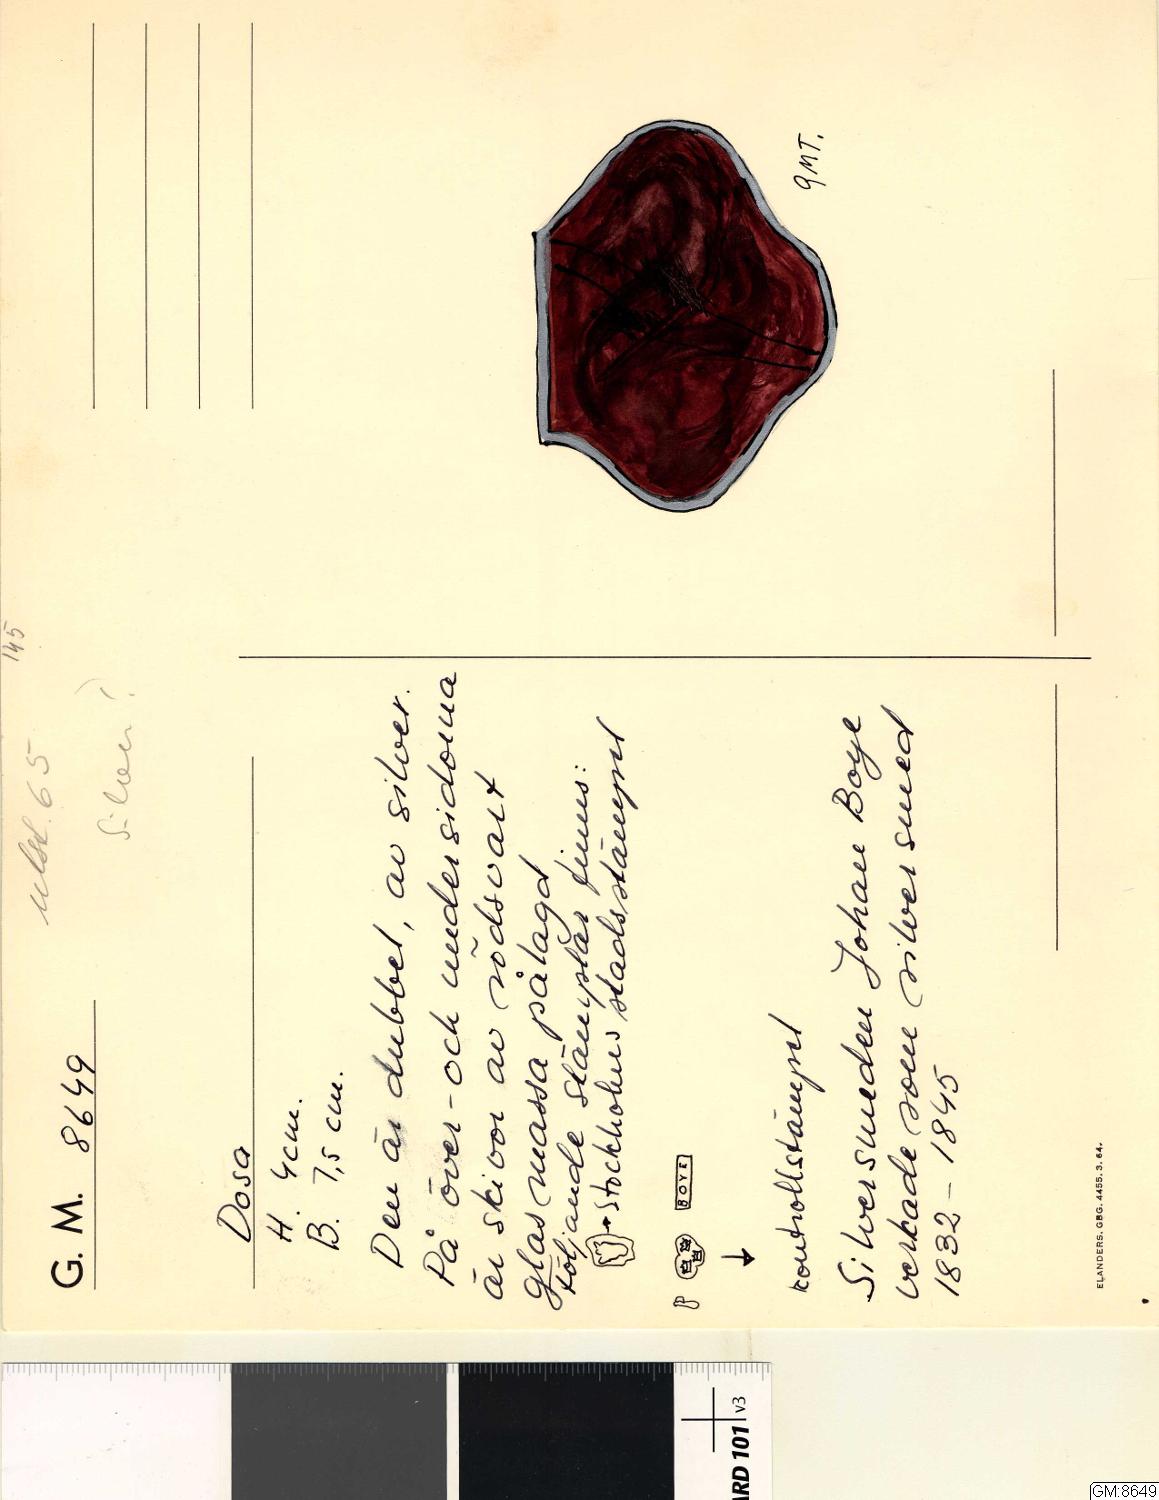 145
utst. 65
Silver?
G. M. 8649
Dosa
H. 4 cm.
B. 7,5 cm.
Den är dubbel, av silver.
På över- och undersidorna
är skivor av rödsvart
glasmassa pålagd
Följande stämplar finns:
Stockholms stadsstämpel
BOYE
kontrollstämpel
Silversmeden Johan Boye
verkade som silversmed
1832-1845
9MT.
ELANDERS. GBG. 4455. 3. 64.
ARD 101 v3
GM:8649